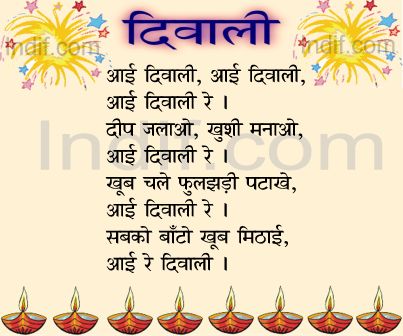 Indif.com Indif.com
दिवाली
आई दिवाली, आई दिवाली,
आई दिवाली रे ।
दीप जलाओ, खुशी मनाओ,
आई दिवाली रे ।
Indif.com
खूब चले फुलझड़ी पटाखे,
आई दिवाली रे ।
सबको बाँटो खूब मिठाई,
आई रे दिवाली ।